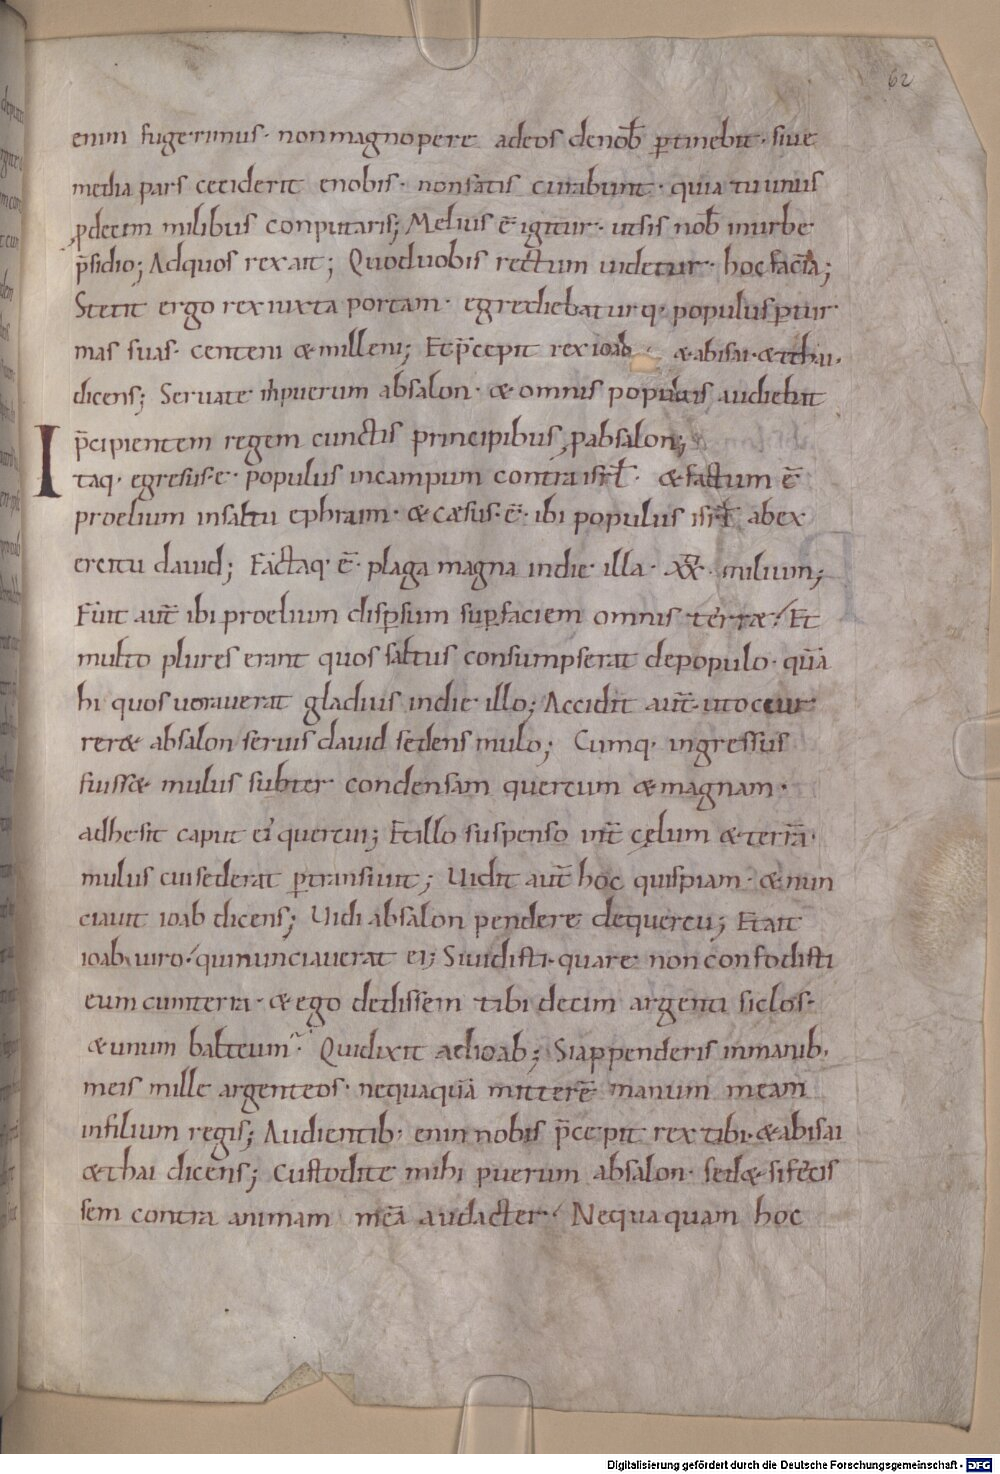 62
enim fugerimus· nonmagnopere adeos denob̅ ꝑtinebit· siue
media pars ceciderit enobis· nonsatis curabunt· quia tuunus
ꝓdecem milibus conputaris; Melius ē igitur· utsis nob̅ inurbe
p̄sidio; Adquos rexait; Quoduobis rectum uidetur· hocfaciā;
Stetit ergo rexiuxta portam· egrediebaturq· populusꝑtur
mas suas· centeni &milleni; Etp̄cepit rexioab &abisai·&ethai·
dicens; Seruate m̅puerum absalon· &omnis populus audiebat
p̄cipientem regem cunctis principibus ꝓabsalon;
Itaq· egresus·e· populus incampum contraisrl̅· &factum ē
proelium insaltu ephraim· &cæsus·ē· ibi populus isrl̅ abex
ercitu dauid; Factaq· ē· plaga magna indie illa· XX· milium;
Fuit aut̅ ibi proelium disꝑsum suꝑfaciem omnis terræ; Et
multo plures erant quos saltus consumpserat depopulo· quā
hi quos uorauerat gladius indie illo; Accidit aut̅·utoccur
rer& absalon seruis dauid sedens mulo; Cumq· ingressus
fuiss& mulus subter condensam quercum &magnam·
adhesit caput ei quercui; Etillo suspenso int̅ cęlum &terrā·
mulus cuisederat ꝑtransiuit; Uidit aut̅ hoc quispiam· &nun
ciauit ioab dicens; Uidi absalon pendere dequercu; Etait
ioab uiro quinunciauerat ei; Siuidisti·quare nonconfodisti
eum cumterra· &ego dedissem tibi decem argenti siclos·
&unum balteum· Quidixit adioab; Siappenderis inmanib·
meis mille argenteos· nequaquā mitterē manum meam
infilium regis; Audientib· enim nobis p̄cepit rex tibi·&abisai
&ethai dicens; Custodite mihi puerum absalon· sed&·sifecis
sem contra animam meā audacter· Nequaquam hoc
Digitalisierung gefördert durch die Deutsche Forschungsgemeinschaft - DFG